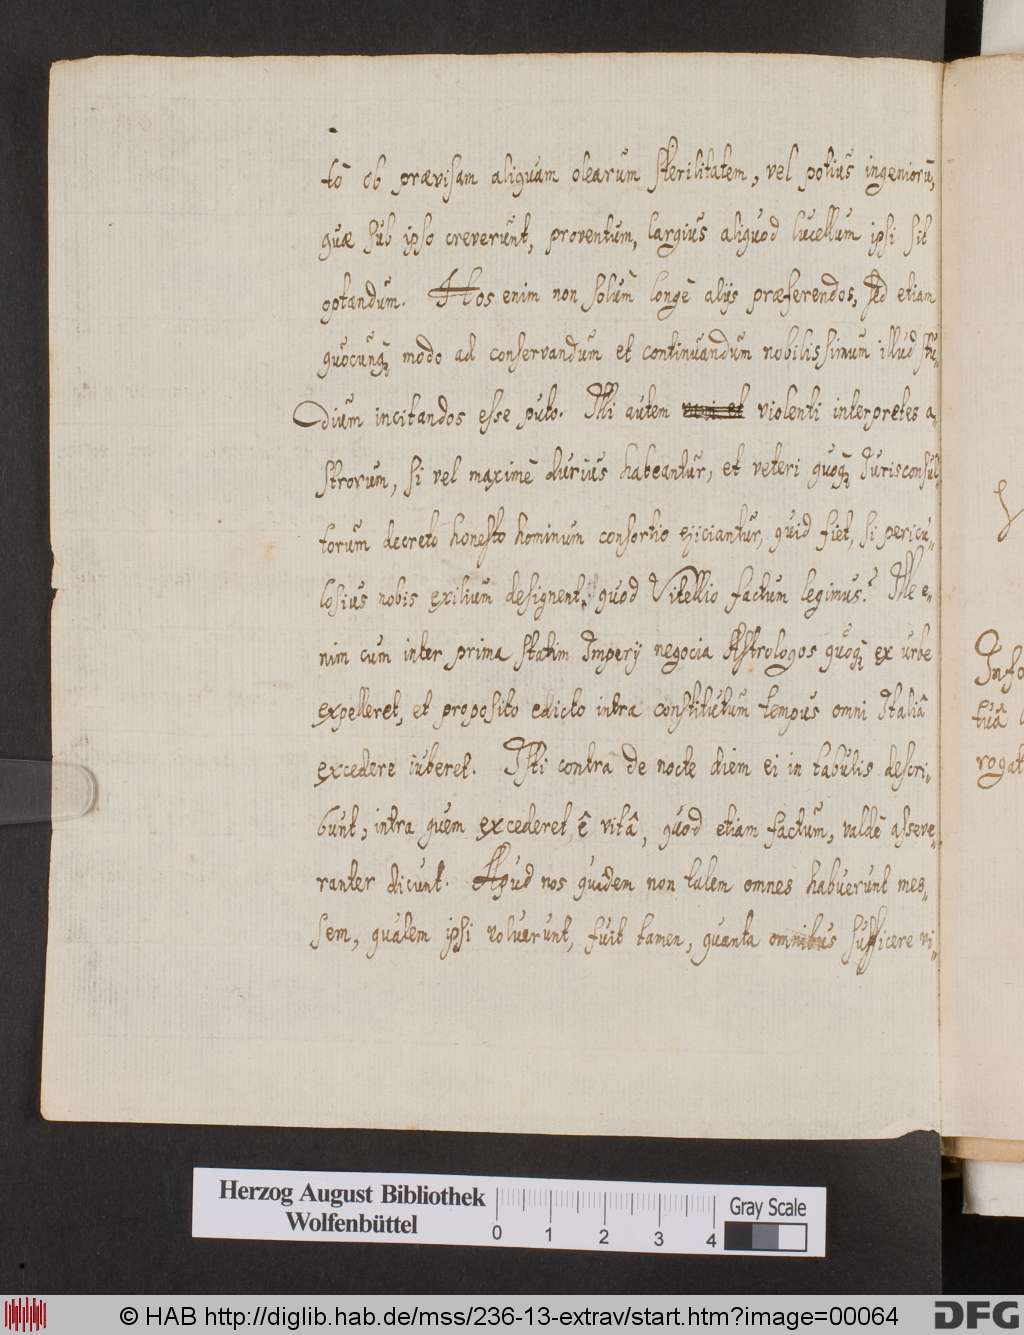 tō ob prævisam aliquam olearum sterilitatem, vel potius ingeniorū,
quæ sub ipso creverunt, proventum, largius aliquod lucellum ipsi sit
optandum. Hos enim non solùm longè alijs præferendos, sed etiam
quocunq; modo ad conservandum et continuandum nobilissimum illud stu-
dium incitandos esse puto. Illi autem violenti interpretes a-
strorum, si vel maximè durius habeantur, et veteri quoq; Jurisconsul-
torum decreto honesto hominum consortio ejiciantur, quid fiet, si pericu-
losius nobis exilium designent, quod Vitellio factum legimus? Ille e-
nim cum inter prima statim Imperij negocia Astrologos quoq; ex urbe
expelleret, et proposito edicto intra constitutum tempus omni Italiâ
excedere iuberet. Isti contra de nocte diem ei in tabulis descri-
bunt, intra quem excederet è vitâ, quod etiam factum, valdè asseve-
ranter dicunt. Apud nos quidem non talem omnes habuerunt mes-
sem, qualem ipsi voluerunt, fuit tamen, quanta omnibus sufficere vi-
Info
tuâ
rogat
Herzog August Bibliothek
Wolfenbüttel
0 1 2 3 4
Gray Scale
© HAB http://diglib.hab.de/mss/236-13-extrav/start.htm?image=00064
DFG